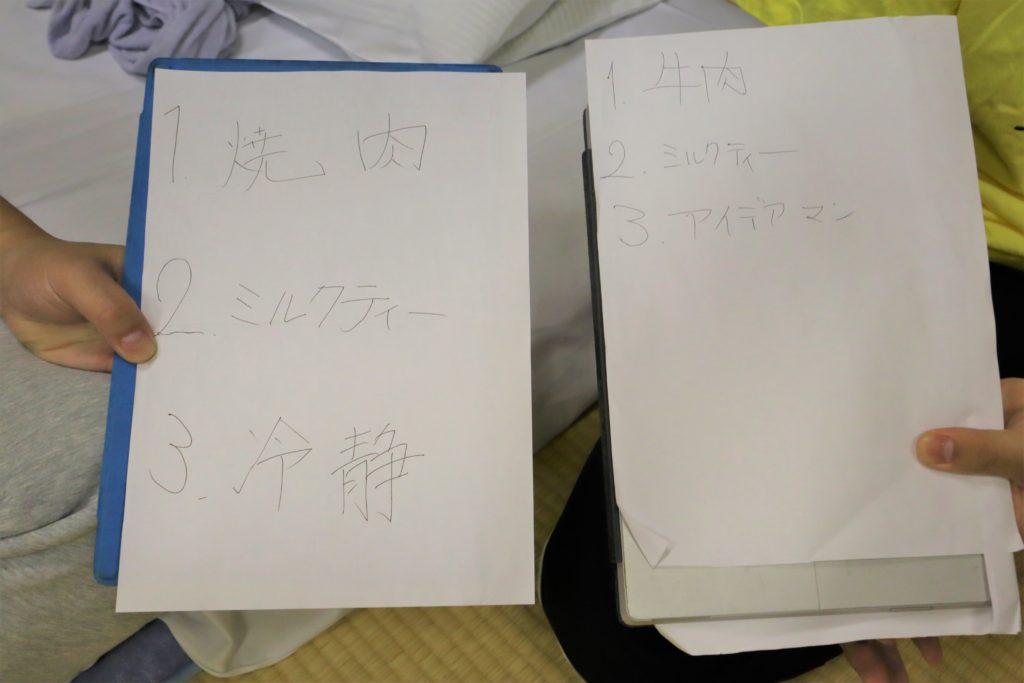 1. 焼肉
2. ミルクティー
3. 冷静
1. 牛肉
2. ミルクティー
3. アイデアマン